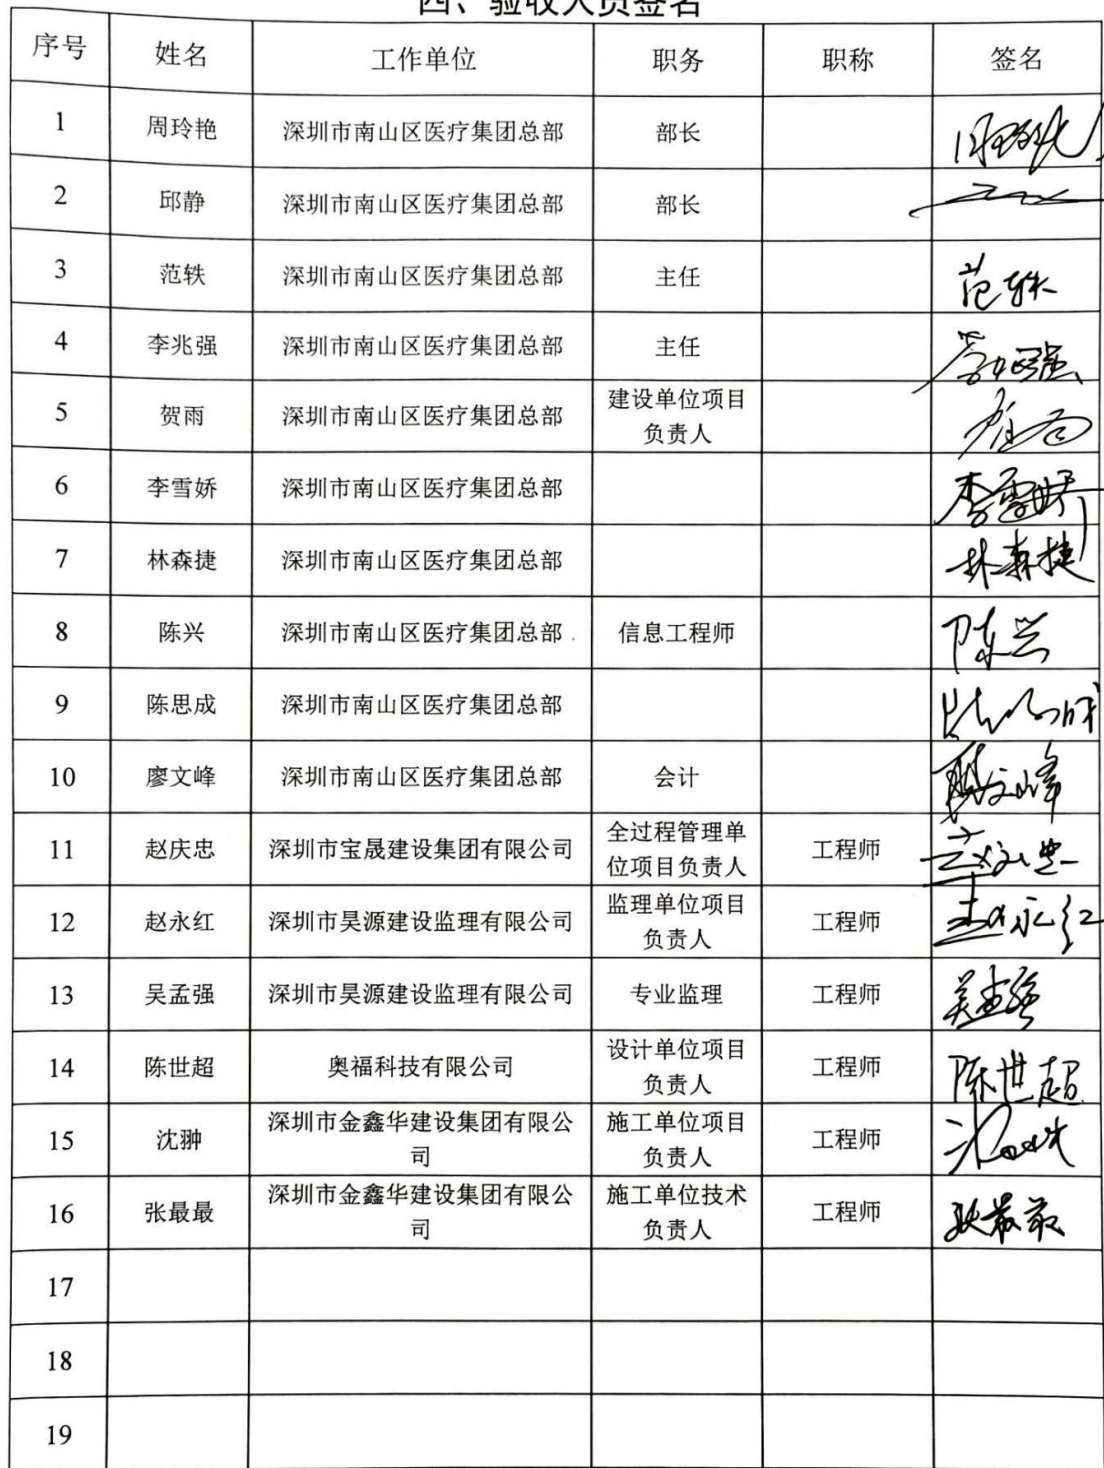 四、验收人员签名
序号 姓名 工作单位 职务 职称 签名
1 周玲艳 深圳市南山区医疗集团总部 部长
2 邱静 深圳市南山区医疗集团总部 部长
3 范轶 深圳市南山区医疗集团总部 主任 范轶
4 李兆强 深圳市南山区医疗集团总部 主任 李兆强
5 贺雨 深圳市南山区医疗集团总部 建设单位项目
负责人
6 李雪娇 深圳市南山区医疗集团总部 李雪娇
7 林森捷 深圳市南山区医疗集团总部 林森捷
8 陈兴 深圳市南山区医疗集团总部 信息工程师 陈兴
9 陈思成 深圳市南山区医疗集团总部 陈思成
10 廖文峰 深圳市南山区医疗集团总部 会计 廖文峰
11 赵庆忠 深圳市宝晟建设集团有限公司 全过程管理单
位项目负责人 工程师 赵庆忠
12 赵永红 深圳市昊源建设监理有限公司 监理单位项目
负责人 工程师 赵永红
13 吴孟强 深圳市昊源建设监理有限公司 专业监理 工程师 吴孟强
14 陈世超 奥福科技有限公司 设计单位项目
负责人 工程师 陈世超
15 沈翀 深圳市金鑫华建设集团有限公
司 施工单位项目
负责人 工程师
16 张最最 深圳市金鑫华建设集团有限公
司 施工单位技术
负责人 工程师 张最最
17
18
19